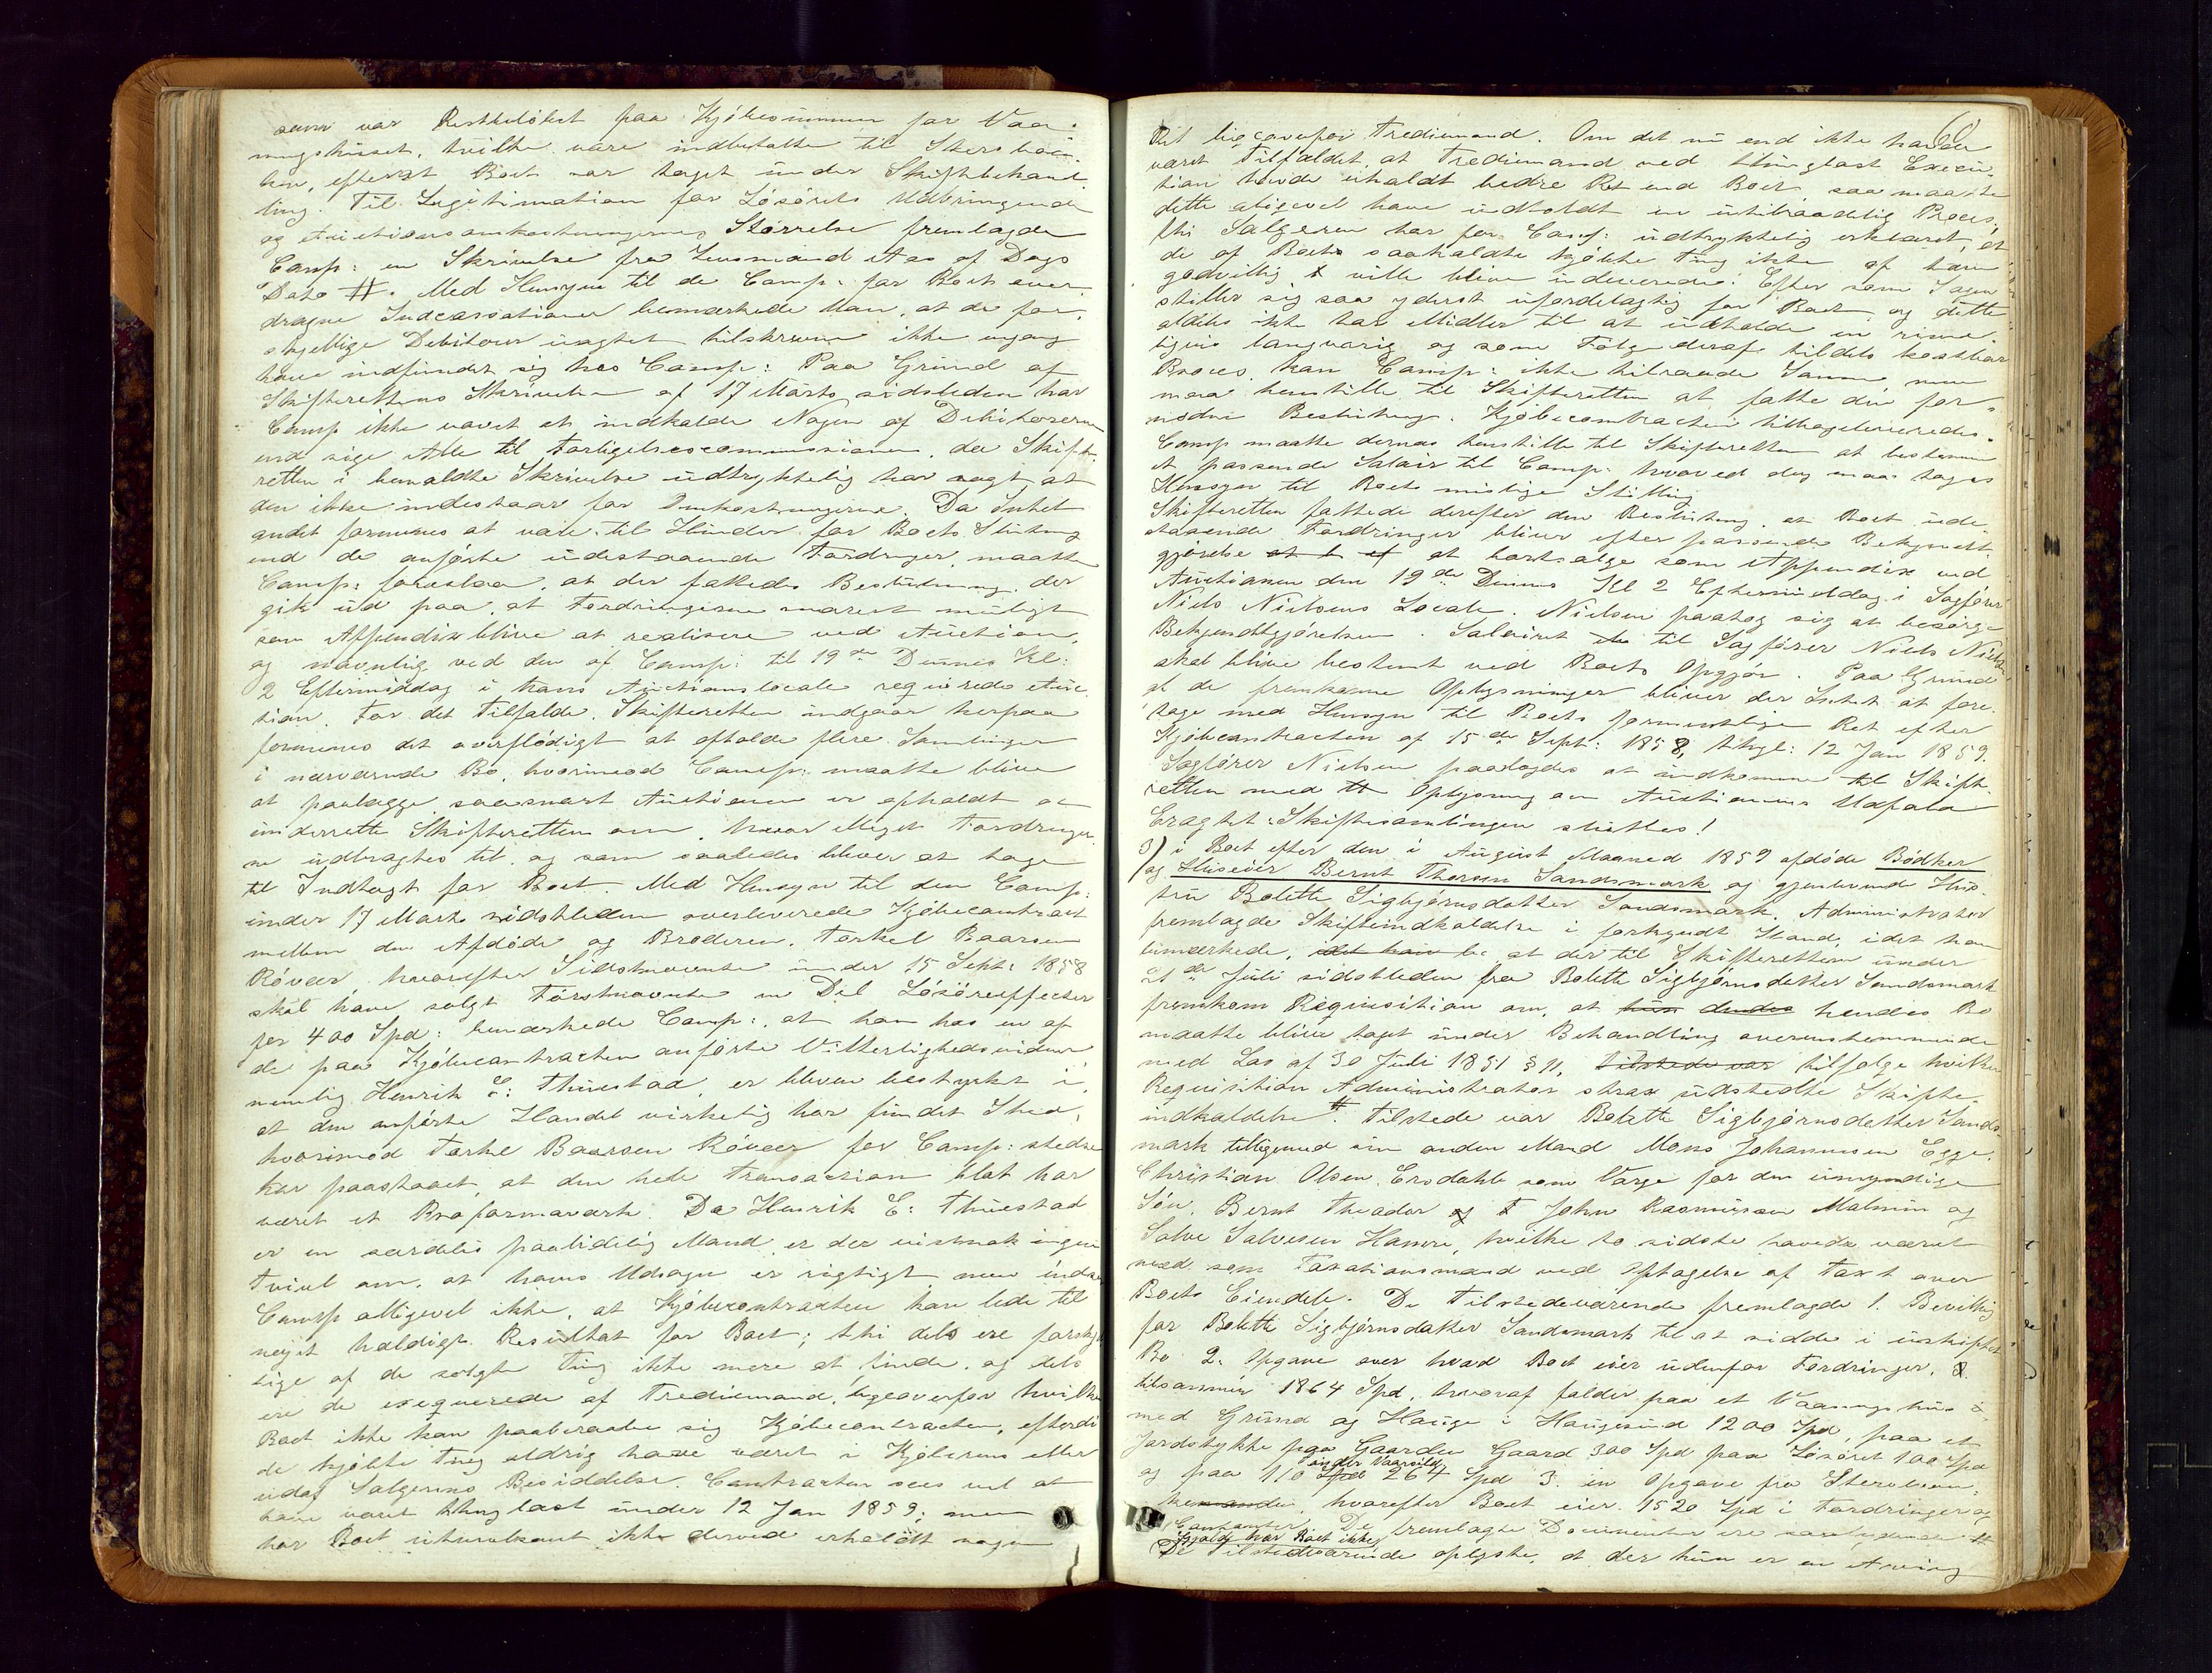 som var Restbeløbet paa Kjøbesummen for Vaa-
ningshuset, hvilke vare indbetalte til Stervboe-
hen, efterat Boet var taget under Skiftebehand-
ling. Til Legitimation for Løsørets Udbringende
og Auctionsomkostningernes Størrelse fremlagde
Comp: en Skrivelse fra Lensmand Aas af Dags
Dato #. Med Hensyn til de Comp: for Boet over-
dragne Indcassationer bemærkede han, at de for-
skjellige Debitorer uagtet tilskrevne ikke engang
have indfundet sig hos Comp: Paa Grund af
Skifterettens Skrivelse af 17 Marts sidstleden har
Comp ikke vovet at indkalde Nogen af Debitorerne
end sige Alle til Forligelsescommissionen, da Skifte-
retten i bemeldte Skrivelse udtrykkelig har sagt, at
den ikke indestaar for Omkostningerne. Da Intet
andet formenes at være til Hinder for Boets Slutning
end de anførte udestaaende Fordringer, maatte
Comp: foreslaa, at der fattedes Beslutning, der
gik ud paa, at Fordringerne snarest muligt
som Appendix blive at realisere ved Auction,
og navnlig ved den af Comp: til 19de Dennes Kl:
2 Eftermiddag i hans Auctionslocale requirerede Auc-
tion. For det Tilfælde, Skifteretten indgaar herpaa
formenes det overflødigt at afholde flere Samlinger
i nærværende Bo, hvorimod Comp: maatte blive
at paalægge saasnart Auctionen er afholdt at
underrette Skifteretten om, hvor Meget Fordringer-
ne udbragtes til, og som saaledes bliver at tage
til Indtægt for Boet. Med Hensyn til den Comp:
under 17 Marts sidstleden overleverede Kjøbecontract
mellem den Afdøde og Broderen, Torkel Baarsen
Røvær, hvorefter Sidstnævnte under 15 Sept: 1858
skal have solgt Førstnævnte en Del Løsøreeffecter
for 400 Spd: bemærkede Comp:, at han hos en af
de paa Kjøbecontracten anførte Vitterlighedsvidner
nemlig Henrik E: Thuestad, er bleven bestyrket i,
at den anførte Handel virkelig har fundet Sted,
hvorimod Torkel Baarsen Røvær for Comp: stedse
har paastaaet, at den hele Transaction blot har
været et Proformaværk. Da Henrik E: Thuestad
er en særdeles paalidelig Mand, er der vistnok ingen
Tvivl om, at hans Udsagn er rigtigt, men indser
Comp alligevel ikke, at Kjøbecontracten kan lede til
noget heldigt Resultat for Boet; thi dels ere forskjel-
lige af de solgte Ting ikke mere at finde, og dels
ere de exequerede af Trediemand, ligeoverfor hvilken
Boet ikke kan paaberaabe sig Kjøbecontracten, efterdi
de kjøbte Ting aldrig have været i Kjøberens eller
udaf Sælgerens Besiddelse. Contracten sees vel at
have været thinglæst under 12 Jan 1859; men
har Boet uberolkant ikke derved erholdt nogen
60
Ret ligeoverfor Trediemand. Om det nu end ikke havde
været Tilfældet, at Trediemand ved thinglæst Execu-
tion havde erholdt bedre Ret end Boet, saa maatte
dette aligevel have udholdt en utilraadelig Proces,
thi Sælgeren har for Comp: udtrykkelig erklæret, at
de af Boets saakaldte kjøbte Ting ikke af ham
godvillig ville blive udleverede. Efter som Sagen
stiller sig saa yderst ufordelagtig for Boet, og dette
aldeles ikke har Midler til at udholde en rime-
ligvis langvarig og som Følge deraf tildels kostbar
Proces, kan Comp: ikke tilraade Samme, men
maa henstille til Skifteretten at fatte den for-
nødne Beslutning. Kjøbecontracten tilbageleveredes.
Comp maatte dernæst henstille til Skifteretten at bestemme
et passende Salair til Comp: hvorved dog maa tages
Hensyn til Boets mislige Stilling
Skifteretten fattede derefter den Beslutning, at Boets ude-
staaende Fordringer bliver efter passende Bekjendt-
gjørelse at b af at bortsælge som Appendix ved
Auctionen den 19de Dennes Kl 2 Eftermiddag i Sagfører
Niels Nielsens Locale. Nielsen paatog sig at besørge
Bekjendtgjørelsen. Salairet til Sagfører Niels Nielsen
skal blive bestemt ved Boets Opgjør. Paa Grund
af de fremkomne Oplysninger bliver der Intet at fore-
tage med Hensyn til Boets formentlige Ret efter
Kjøbecontracten af 15de Sept: 1858, thgl: 12 Jan 1859.
Sagfører Nielsen paalagdes at indkomme til Skifte-
retten med Oplysning om Auctionens Udfald
Eragtet: Skiftesamlingen sluttes!
3) i Boet efter den i August Maaned 1859 afdøde Bødker
og Huseier Bernt Thorsen Sandsmark og gjenlevende Hus-
tru Bolette Sigbjørnsdatter Sandsmark. Administrator
fremlagde Skifteindkaldelse i forkyndt Stand, idet han
bemærkede, idet han be at der til Skifteretten under
21de Juli sidstleden fra Bolette Sigbjørnsdatter Sandsmark
fremkom Requisition om, at hun dendes hendes Bo
maatte blive taget under Behandling overensstemmende
med Lov af 30 Juli 1851 § 11, Tilstede var tilfølge hvilken
Requisition Administrator strax udstedte Skifte-
indkaldelse #. Tilstede var Bolette Sigbjørnsdatter Sands-
mark tilligemed sin anden Mand Mons Johannessen Egge.
Christian Olsen Ersdahls som Værge for den umyndige
Søn, Bernt Theodor og T John Rasmussen Malmin og
Salve Salvesen Hamre, hvilke to sidste havde været
med som Taxationsmænd ved Optagelse af Taxt over
Boets Eiendele. De Tilstedeværende fremlagde 1. Bevilling
for Bolette Sigbjørnsdatter Sandsmark til at sidde i uskiftet
Bo 2. Opgave over hvad Boet eier udenfor Fordringer,
tilsammen 1864 Spd, hvoraf falder paa et Vaaningshus
med Grund og Hauge i Haugesund 1200 Spd, paa et
Jordstykke paa Gaarden Gaard 300 Spd paa Løsøret 100 Spd
og paa 110 Spd under Vaarsild 264 Spd 3. en Opgave fra Stervboen-
kemanden, hvorefter Boet eier 1520 Spd i Fordringer og
Contanter. De fremlagte Documenter ere saalydende #
Gjæld har Boet ikke,
De Tilstedeværende oplyste, at der kun er en Arving